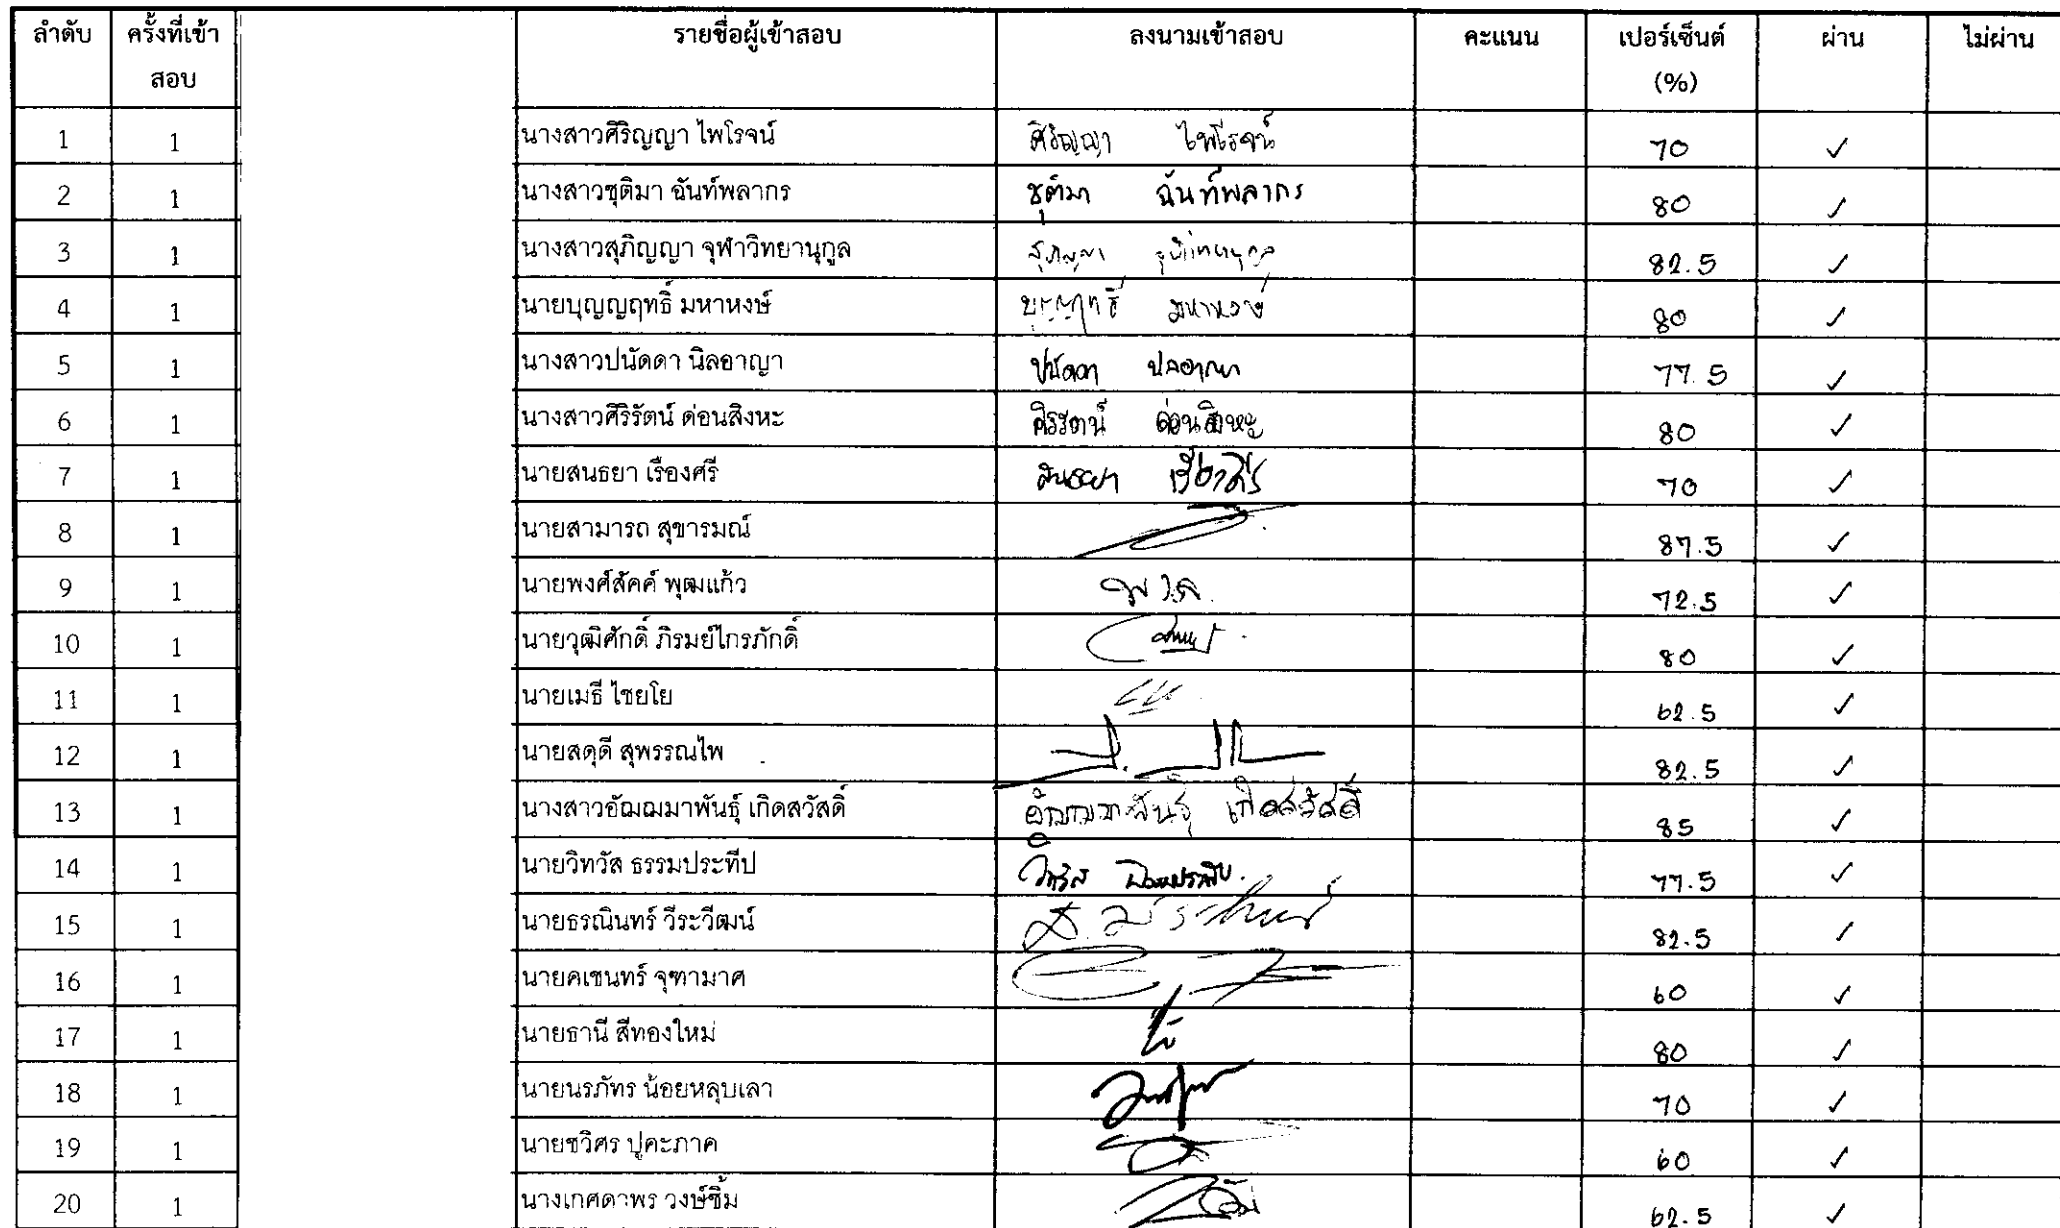 ลำดับ ครั้งที่เข้าสอบ รายชื่อผู้เข้าสอบ ลงนามเข้าสอบ คะแนน เปอร์เซ็นต์ (%) ผ่าน ไม่ผ่าน
1 1 นางสาวศิริญญา ไพโรจน์ ศิริญญา ไพโรจน์ 70 ✓
2 1 นางสาวชุติมา ฉันท์พลากร ชุติมา ฉันท์พลากร 80 ✓
3 1 นางสาวสุภิญญา จุฬาวิทยานุกูล สุภิญญา จุฬาวิทยานุกูล 82.5 ✓
4 1 นายบุญญฤทธิ์ มหาหงษ์ บุญญฤทธิ์ มหาหงษ์ 80 ✓
5 1 นางสาวปนัดดา นิลอาญา ปนัดดา นิลอาญา 77.5 ✓
6 1 นางสาวศิริรัตน์ ด่อนสิงหะ ศิริรัตน์ ด่อนสิงหะ 80 ✓
7 1 นายสนธยา เรืองศรี สนธยา เรืองศรี 70 ✓
8 1 นายสามารถ สุขารมณ์ 87.5 ✓
9 1 นายพงศ์สัคค์ พุฒแก้ว 72.5 ✓
10 1 นายวุฒิศักดิ์ ภิรมย์ไกรภักดิ์ 80 ✓
11 1 นายเมธี ไชยโย 62.5 ✓
12 1 นายสดุดี สุพรรณไพ 82.5 ✓
13 1 นางสาวอัฌฌมาพันธุ์ เกิดสวัสดิ์ อัฌฌมาพันธุ์ เกิดสวัสดิ์ 85 ✓
14 1 นายวิทวัส ธรรมประทีป วิทวัส ธรรมประทีป 77.5 ✓
15 1 นายธรณินทร์ วีระวีฒน์ 82.5 ✓
16 1 นายคเชนทร์ จุฑามาศ 60 ✓
17 1 นายธานี สีทองใหม่ 80 ✓
18 1 นายนรภัทร น้อยหลุบเลา 70 ✓
19 1 นายชวิศร ปูคะภาค 60 ✓
20 1 นางเกศดาพร วงษ์ซิ้ม 62.5 ✓